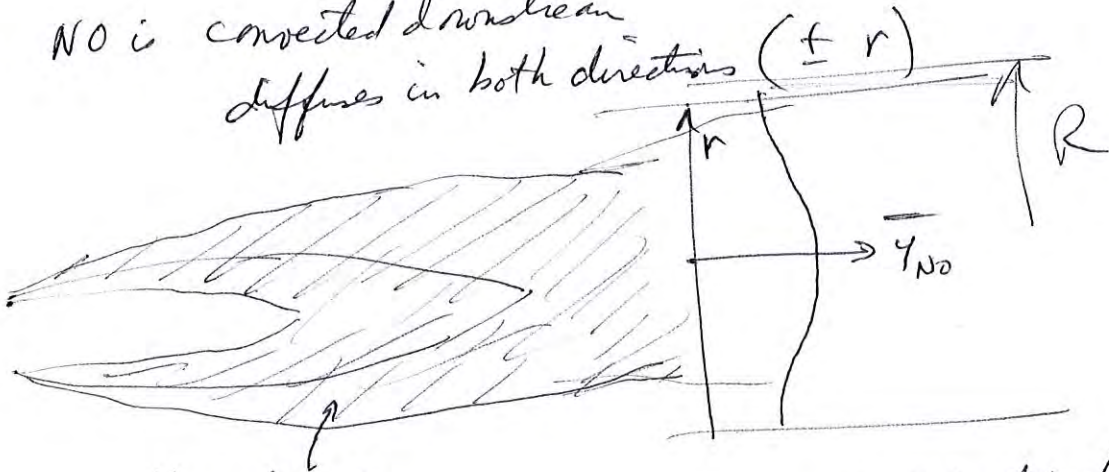 NO is convected downstream
diffuses in both directions (± r)
r
R
Y̅NO